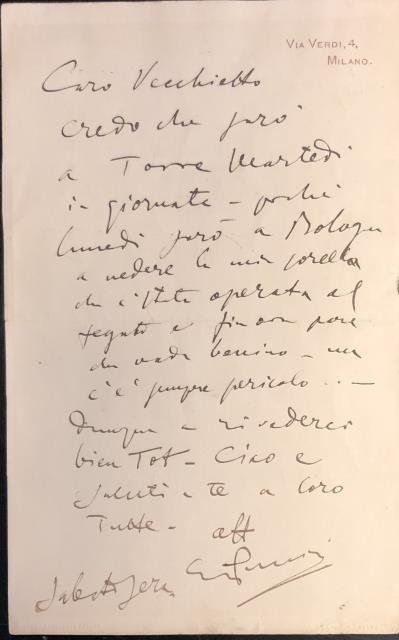 VIA VERDI, 4.
MILANO.
Caro Vecchietto
credo che sarò
a Torre Martedì
in giornata - poiché
lunedì sarò a Bologna
a vedere la mia sorella
che è stata operata al
fegato e finora pare
che vada benino - ma
c'è sempre pericolo .. -
Dunque a rivederci
bien Tot - Ciao e
saluti a te a loro
Tutte - aff
Sabato sera